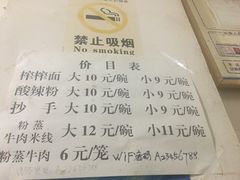 禁止吸烟
No smoking
价目表
榨榨面 大10元/碗 小9元/碗
酸辣粉 大10元/碗 小9元/碗
抄手 大10元/碗 小9元/碗
粉蒸
牛肉米线 大12元/碗 小11元/碗
粉蒸牛肉 6元/笼 WiF密码 A23456788